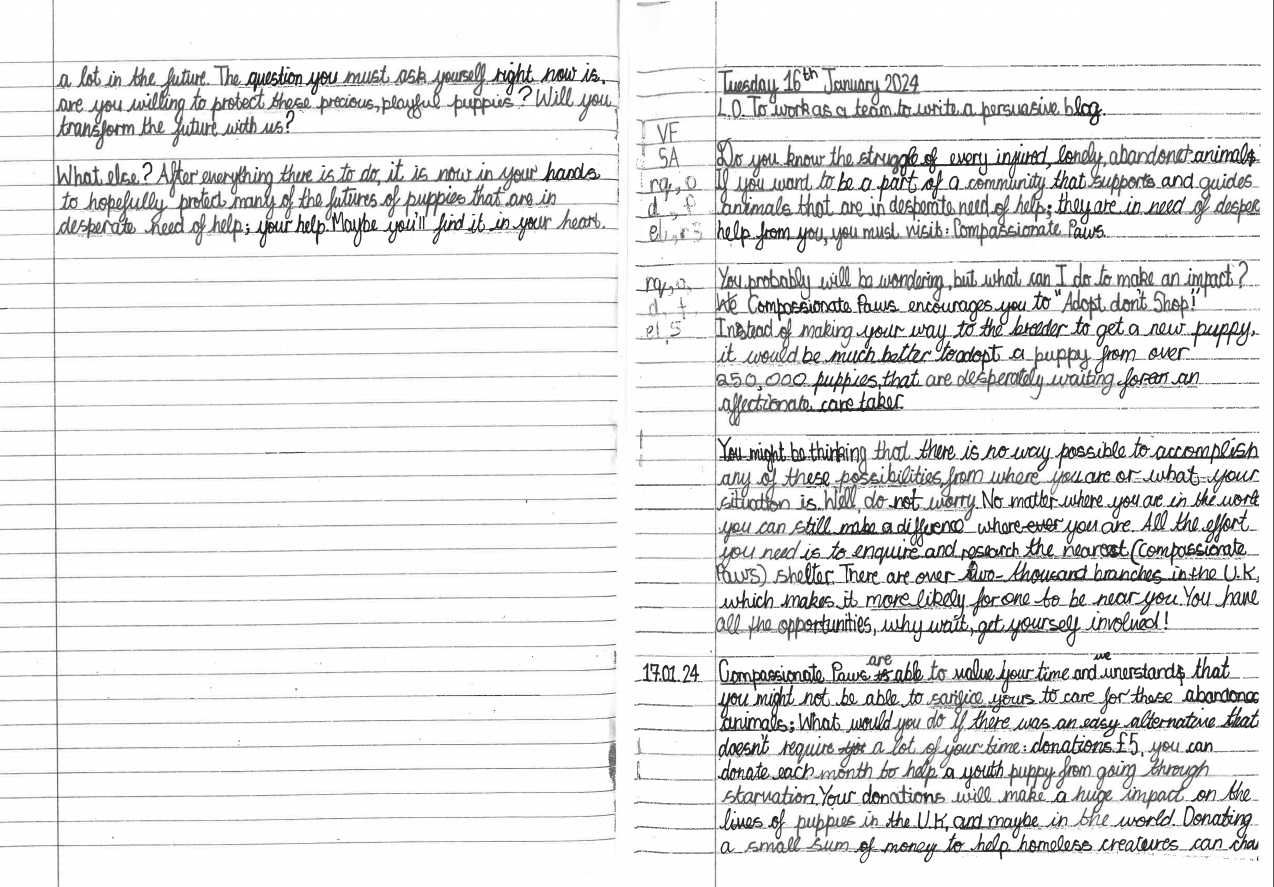 a lot in the future. The question you must ask yourself right now is,
are you willing to protect these precious, playful puppies? Will you
transform the future with us?
What else? After everything there is to do, it is now in your hands
to hopefully protect many of the futures of puppies that are in
desperate need of help; your help. Maybe you'll find it in your heart.
Tuesday 16th January 2024
L.O. To work as a team to write a persuasive blog.
VF
SA
Do you know the struggle of every injured, lonely, abandonet animals
rq, o
If you want to be a part of a community that supports and guides
d, f
animals that are in desperate need of help; they are in need of desper
el, r3
help from you, you must visit: Compassionate Paws.
rq, o,
You probably will be wondering, but what can I do to make an impact?
d, f,
We Compassionate Paws encourages you to "Adopt, don't Shop!"
el, S
Instead of making your way to the breeder to get a new puppy,
it would be much better to adopt a puppy from over
250,000 puppies, that are desperately waiting for an
affectionate care taker.
You might be thinking that there is no way possible to accomplish
any of these possibilities from where you are or what your
situation is. Well, do not worry. No matter where you are in the worl
you can still make a difference where ever you are. All the effort
you need is to enquire and research the nearest (Compassionate
Paws) shelter. There are over two-thousand branches in the U.K,
which makes it more likely for one to be near you. You have
all the opportunities, why wait, get yourself involved!
17.01.24
Compassionate Paws are able to value your time and we unerstands that
you might not be able to sarifice yours to care for these abandone
animals; What would you do if there was an easy alternative that
doesn't require a lot of your time: donations. £5, you can
donate each month to help a youth puppy from going through
starvation. Your donations will make a huge impact on the
lives of puppies in the U.K, and maybe in the world. Donating
a small sum of money to help homeless creatures can cha